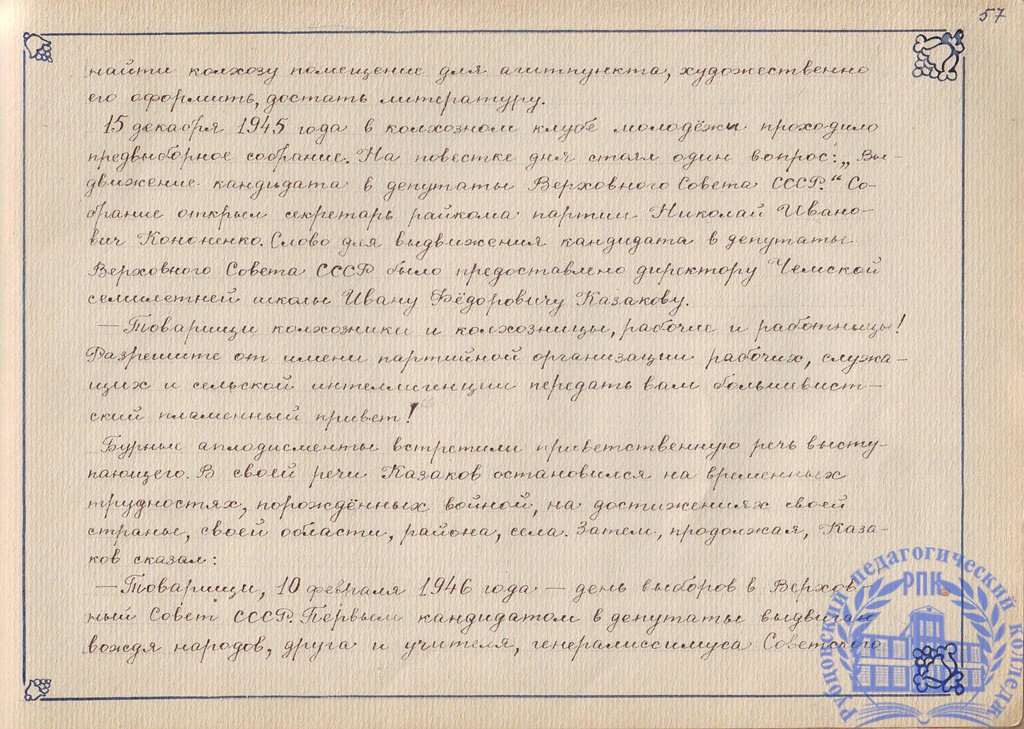 57
найти колхозу помещение для агитпункта, художественно
его оформить, достать литературу.
15 декабря 1945 года в колхозном клубе молодёжы проходило
предвыборное собрание. На повестке дня стоял один вопрос: „Вы-
движение кандидата в депутаты Верховного Совета СССР.“ Со-
брание открыл секретарь райкома партии Николай Ивано-
вич Кононенко. Слово для выдвижения кандидата в депутаты
Верховного Совета СССР было предоставлено директору Чемской
семилетней школы Ивану Фёдоровичу Казакову.
— Товарищи колхозники и колхозницы, рабочие и работницы!
Разрешите от имени партийной организации рабочих, служа-
щих и сельской интеллигенции передать вам большивист-
ский пламенный привет!
Бурные аплодисменты встретили приветственную речь высту-
пающего. В своей речи Казаков остановился на временных
трудностях, порождённых войной, на достижениях своей
страны, своей области, района, села. Затем, продолжая, Каза-
ков сказал:
— Товарищи, 10 февраля 1946 года — день выборов в Верхов-
ный Совет СССР. Первым кандидатом в депутаты выдвигаю
вождя народов, друга и учителя, генералиссимуса Советского
Рубцовский педагогический колледж
РПК